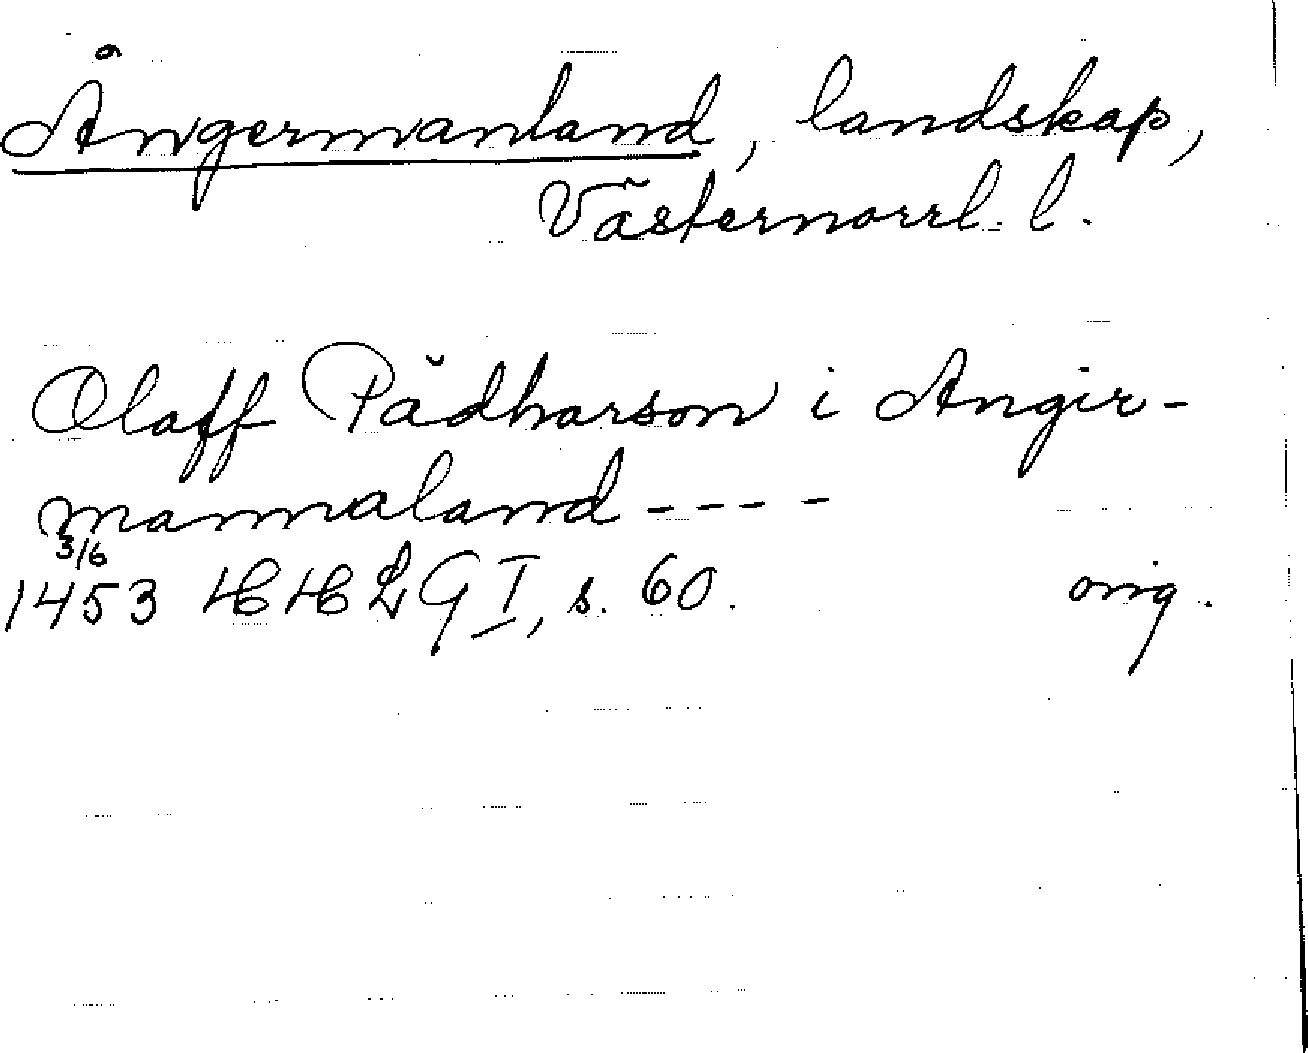 Ångermanland, landskap,
Västernorrl. l.
Olaff Pädharson i Angir-
mannaland ----
3/6
1453 HH LG I, s. 60. orig.